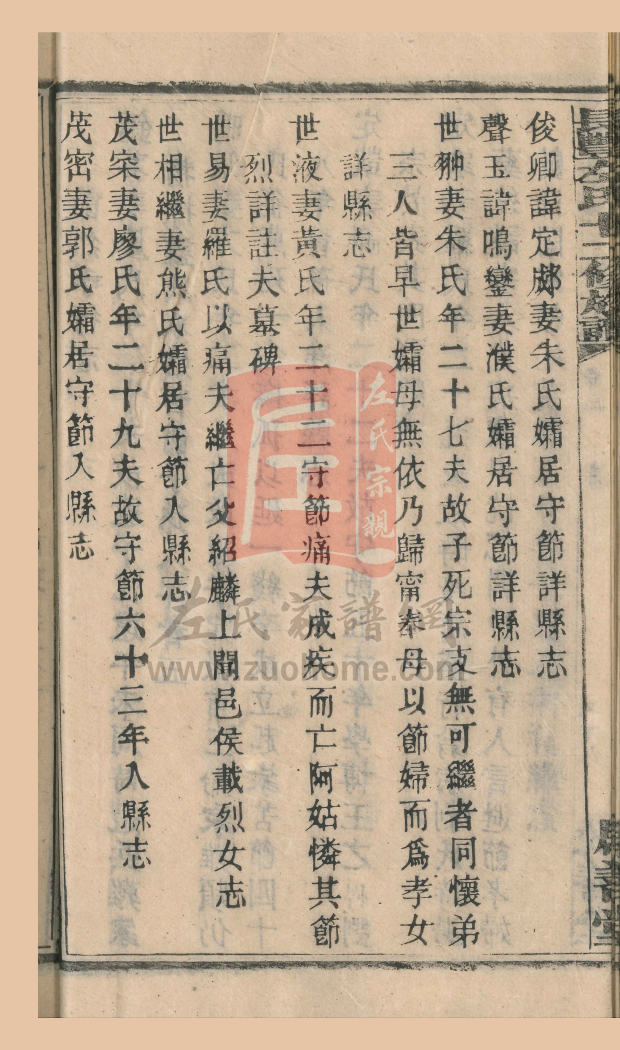 俊卿諱定郕妻朱氏孀居守節詳縣志
聲玉諱鳴鑾妻濮氏孀居守節詳縣志
世翀妻朱氏年二十七夫故子死宗支無可繼者同懷弟
三人皆早世孀母無依乃歸甯奉母以節婦而爲孝女
詳縣志
世液妻黃氏年二十二守節痛夫成疾而亡阿姑憐其節
烈詳註夫墓碑
世易妻羅氏以痛夫繼亡父紹麟上聞邑侯載烈女志
世相繼妻熊氏孀居守節入縣志
茂寀妻廖氏年二十九夫故守節六十三年入縣志
茂密妻郭氏孀居守節入縣志
左氏宗親
左氏家譜網
www.zuohome.com